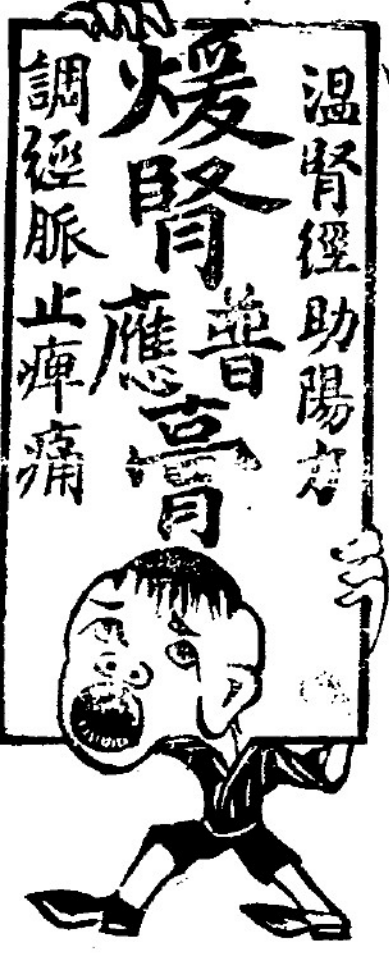 温腎徑助陽力
煖腎
普應
膏
調經脈止痺痛